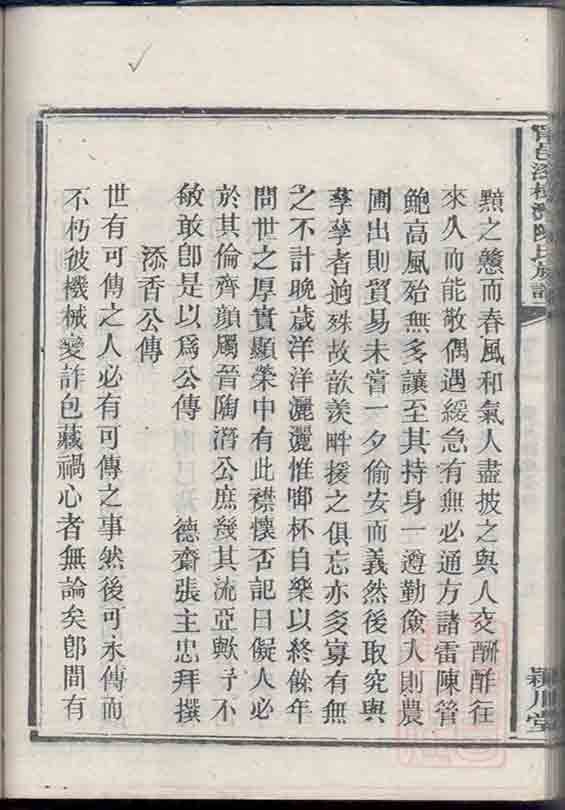 黯之戆而春風和氣人盡披之與人交酬酢往
來久而能敬偶遇緩急有無必通方諸雷陳管
鮑高風殆無多讓至其持身一遵勤儉入則農
圃出則貿易未嘗一夕偷安而義然後取究與
孳孳者逈殊故歆羨畔援之俱忘亦多寡有無
之不計晚歲洋洋灑灑惟啣杯自樂以終餘年
問世之厚實顯榮中有此襟懷否記曰儗人必
於其倫齊顔屬晉陶潛公庶幾其流亞歟予不
敏敢卽是以爲公傳　德齋張主忠拜撰
添香公傳
世有可傳之人必有可傳之事然後可永傳而
不朽彼機械變詐包藏禍心者無論矣卽間有
陳氏族譜
潁川堂